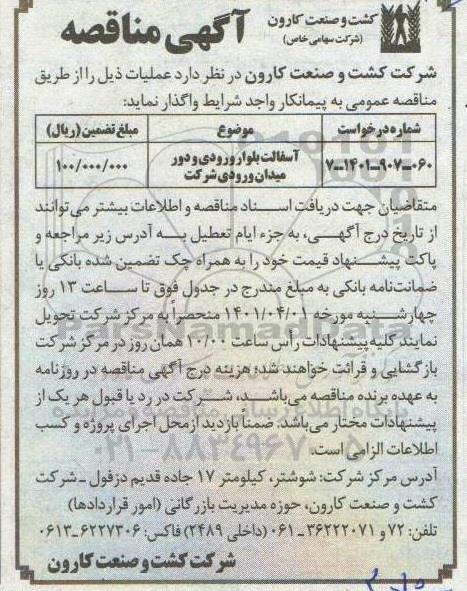 کشت و صنعت کارون
(شرکت سهامی خاص)
آگهی مناقصه
شرکت کشت و صنعت کارون در نظر دارد عملیات ذیل را از طریق
مناقصه عمومی به پیمانکار واجد شرایط واگذار نماید:
شماره درخواست موضوع مبلغ تضمین (ریال)
۷-۱۴۰۱-۹۰۷-۰۶۰ آسفالت بلوار ورودی و دور ۱۰۰/۰۰۰/۰۰۰
میدان ورودی شرکت
متقاضیان جهت دریافت اسناد مناقصه و اطلاعات بیشتر می‌توانند
از تاریخ درج آگهی، به جزء ایام تعطیل به آدرس زیر مراجعه و
پاکت پیشنهاد قیمت خود را به همراه چک تضمین شده بانکی یا
ضمانت‌نامه بانکی به مبلغ مندرج در جدول فوق تا ساعت ۱۳ روز
چهارشنبه مورخه ۱۴۰۱/۰۴/۰۱ منحصراً به مرکز شرکت تحویل
نمایند کلیه پیشنهادات رأس ساعت ۱۰/۰۰ همان روز در مرکز شرکت
بازگشایی و قرائت خواهند شد؛ هزینه درج آگهی مناقصه در روزنامه
به عهده برنده مناقصه می‌باشد، شرکت در رد یا قبول هر یک از
پیشنهادات مختار می‌باشد. ضمناً بازدید از محل اجرای پروژه و کسب
اطلاعات الزامی است.
آدرس مرکز شرکت: شوشتر، کیلومتر ۱۷ جاده قدیم دزفول - شرکت
کشت و صنعت کارون، حوزه مدیریت بازرگانی (امور قراردادها)
تلفن: ۷۲ و ۳۶۲۲۲۰۷۱-۰۶۱ (داخلی ۲۴۸۹) فاکس: ۶۲۲۷۳۰۶-۰۶۱۳
شرکت کشت و صنعت کارون
ParsNamadData
پایگاه اطلاع رسانی مناقصه و مزایده
۰۲۱-۸۸۳۴۹۶۷۰-۵